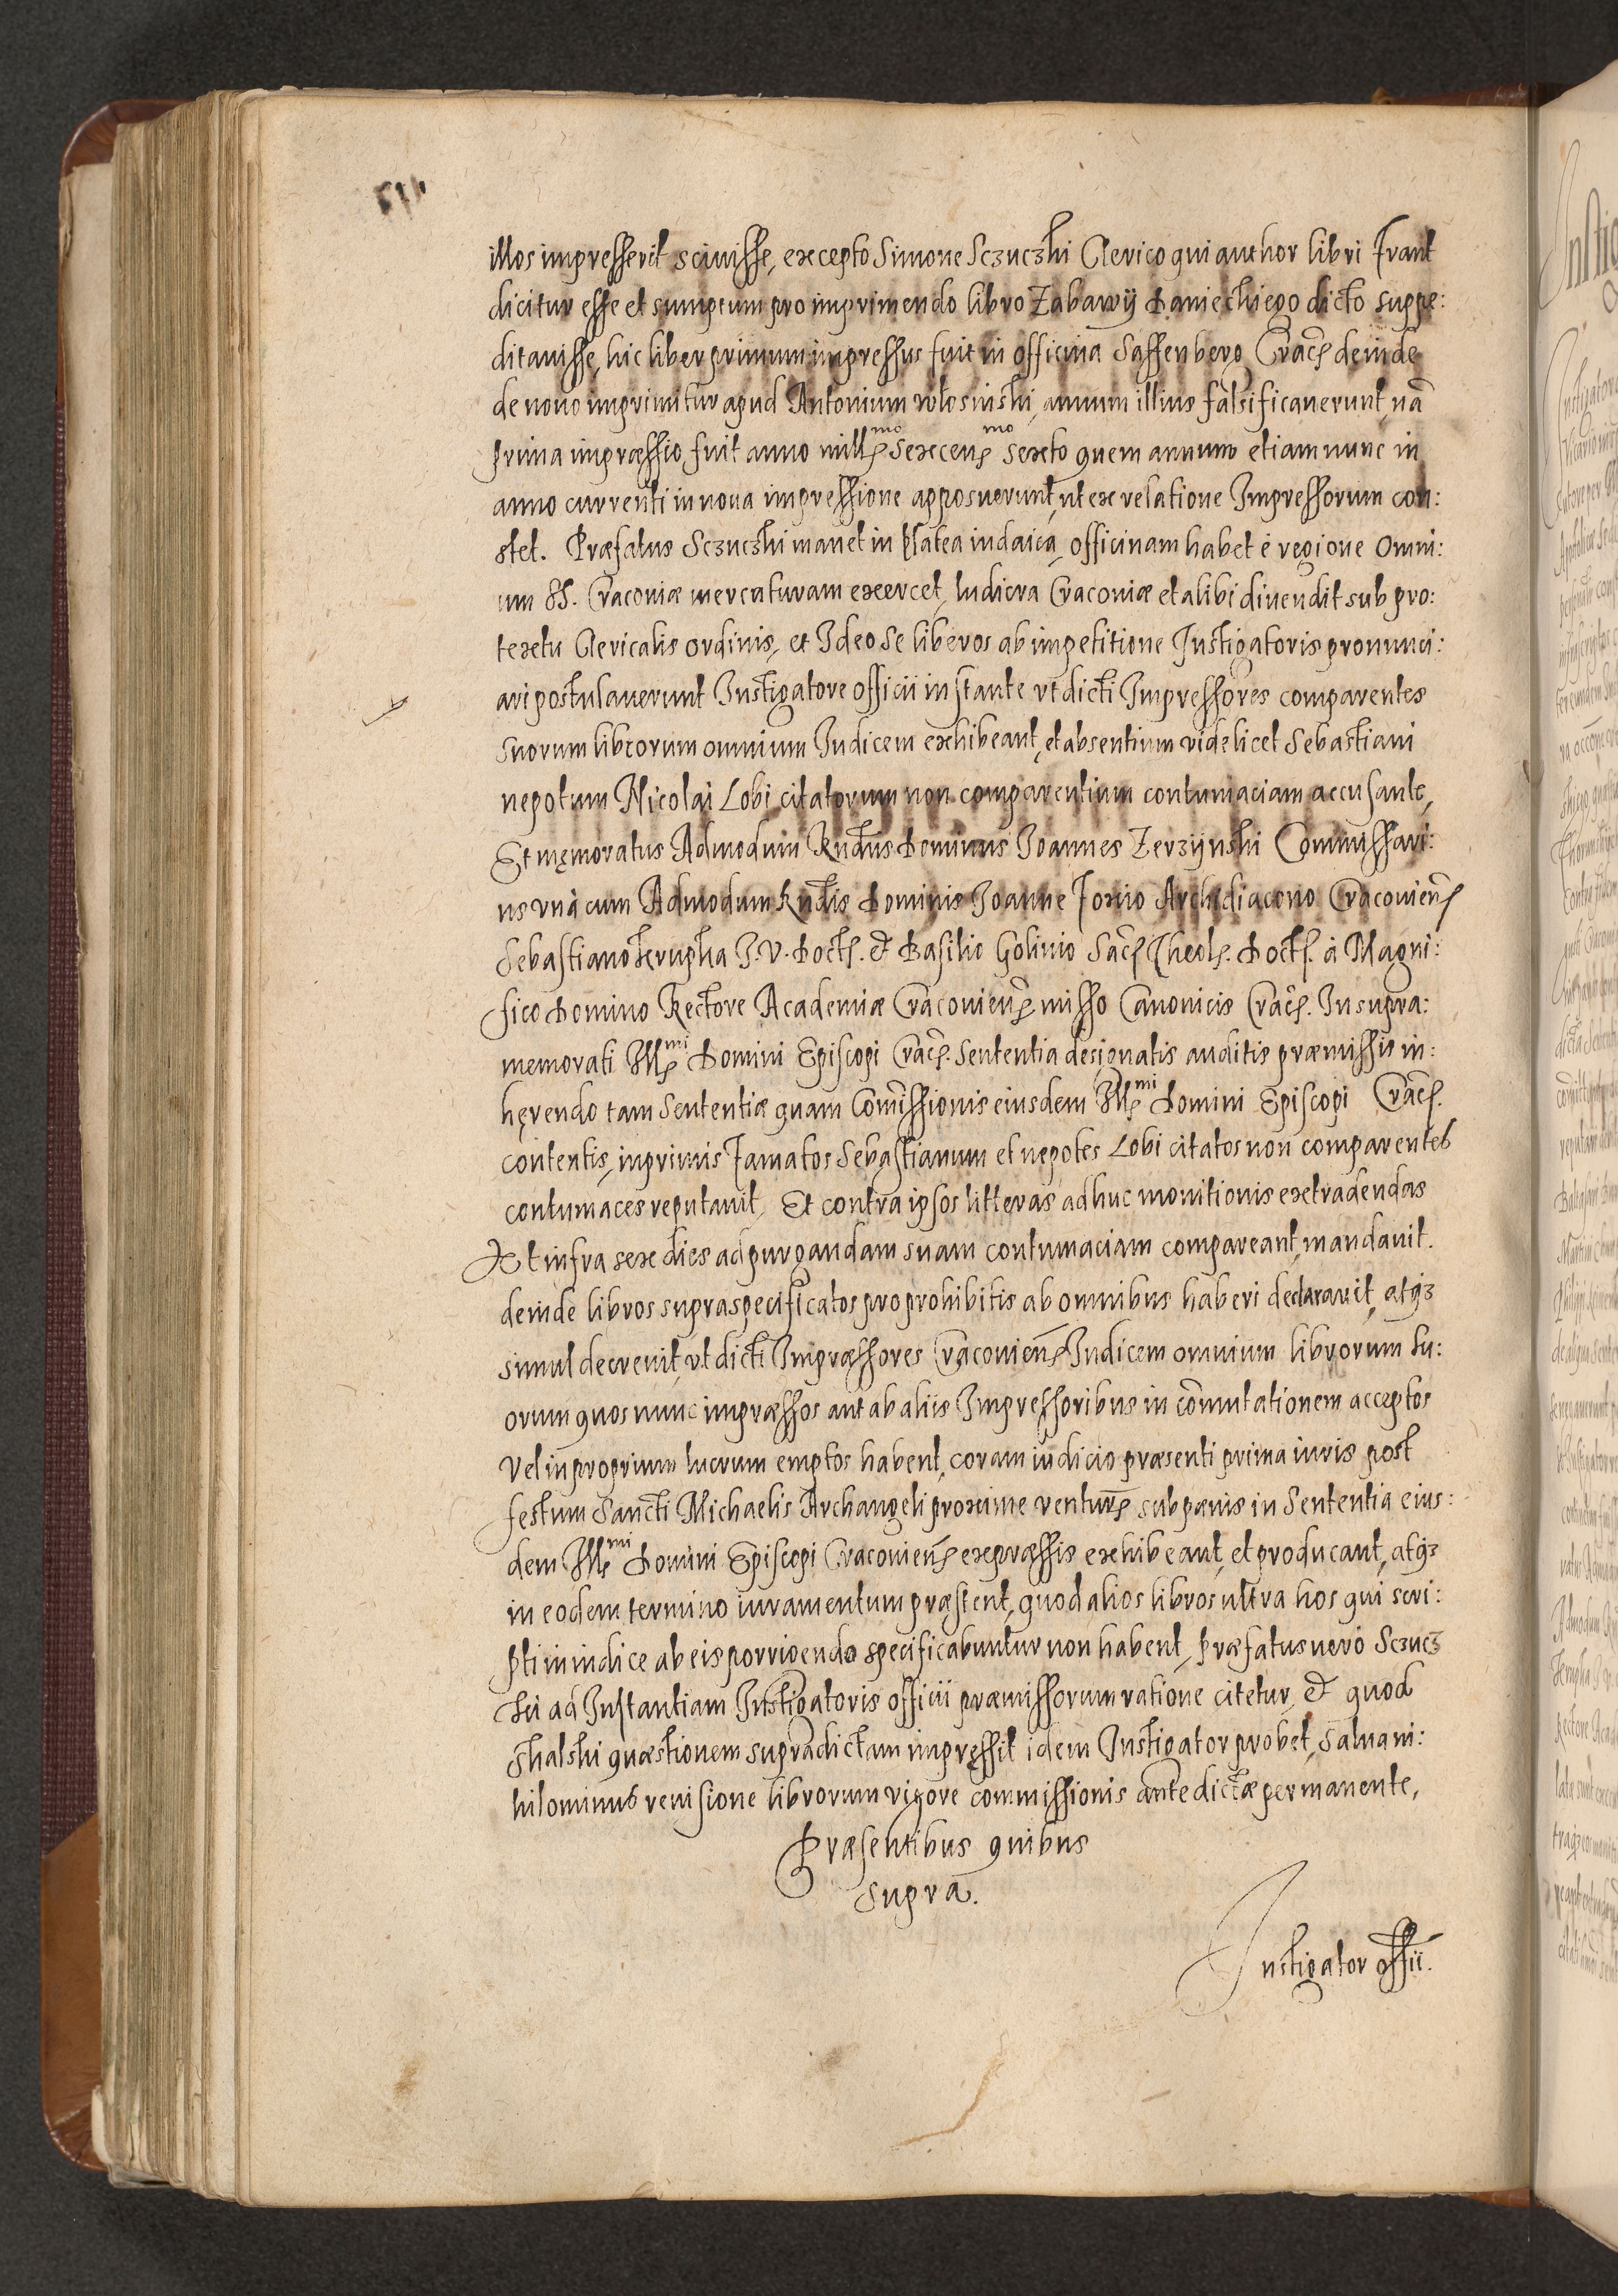 illos impresserit scivisse, excepto Simone Sczuczki Clerico qui author libri Frant
dicitur esse et sumptum pro imprimendo libro Zabawy Dwnie dicto suppe:
ditavisse, hic liber primum impressus fuit in officina Saffenberg Cracȩ deinde
de novo imprimitur apud Antonium Wosinski, annum illius falsificaverunt, nã
prima impræssio fuit anno millmo sexcenmo sexto quem annum etiam nunc in
anno currenti in nova impressione apposuerunt, ut ex relatione Impressorum con:
stet. Præfatus Sczuczki manet in platea iudaica, officinam habet é regione Omni:
um SS. Cracoviæ mercaturam exercet, ludicra Cracoviæ et alibi divendit sub præ:
textu Clericalis ordinis, et Ideo se liberos ab impetitione Instigatoris pronunci:
ari postulaverunt Instigatore officii instante vt dicti Impressores comparentes
suorum librorum omnium Indicem exhibeant, et absentium videlicet Sebastiani
nepotum Nicolai Lobi citatorum non comparentium contumaciam accusante,
Et memoratus Admodum Rndus Dominus Joannes Zerzynski Commissari:
us vnà cum Admodum Rndis Dominis Joanne Foxio Archidiacono Cracovien
Sebastiano Krupka J. V. Doct. et Basilio Golinio Sac Theol. Doct. à Magni:
fico Domino Rectore Academiæ Cracovien misso Canonicis Crac. In supra:
memorati Illmi Domini Episcopi Crac. Sententia designatis auditis præmissis in:
hęrendo tam Sententiæ quam Comissionis eiusdem Illmi Domini Episcopi Crac.
contentis, inprimis Famatos Sebastianum et nepotes Lobi citatos non comparentes
contumaces reputavit, Et contra ipsos litteras adhuc monitionis extradendas
Vt infra sex dies ad purgandam suam contumaciam compareant, mandavit.
deinde libros supraspecificatos pro prohibitis ab omnibus haberi declaravit, atq3
simul decrevit, vt dicti Impræssores Cracovien Indicem omnium librorum su:
orum quos nunc impræssos aut ab aliis Impressoribus in comutationem acceptos
vel in proprium lucrum emptos habent, coram iudicio præsenti prima iuris post
festum Sancti Michaelis Archangeli proxime ventur sub pænis in Sententia eius:
dem Illmi Domini Episcopi Cracovien expræssis exhibeant, et producant, atq3
in eodem termino iuramentum præstent, quod alios libros ultra hos qui scri:
pti in indice ab eis porrigendo specificabuntur non habent, præfatus verò Sczucz
ki ad Instantiam Instigatoris officii præmissorum ratione citetur, et quod
Skalski quæstionem supradictam impręssit idem Instigator probet, salva ni:
hilominus revisione librorum vigore commissionis ante dictæ permanente,
Præsentibus quibus
supra.
Instigator offii.